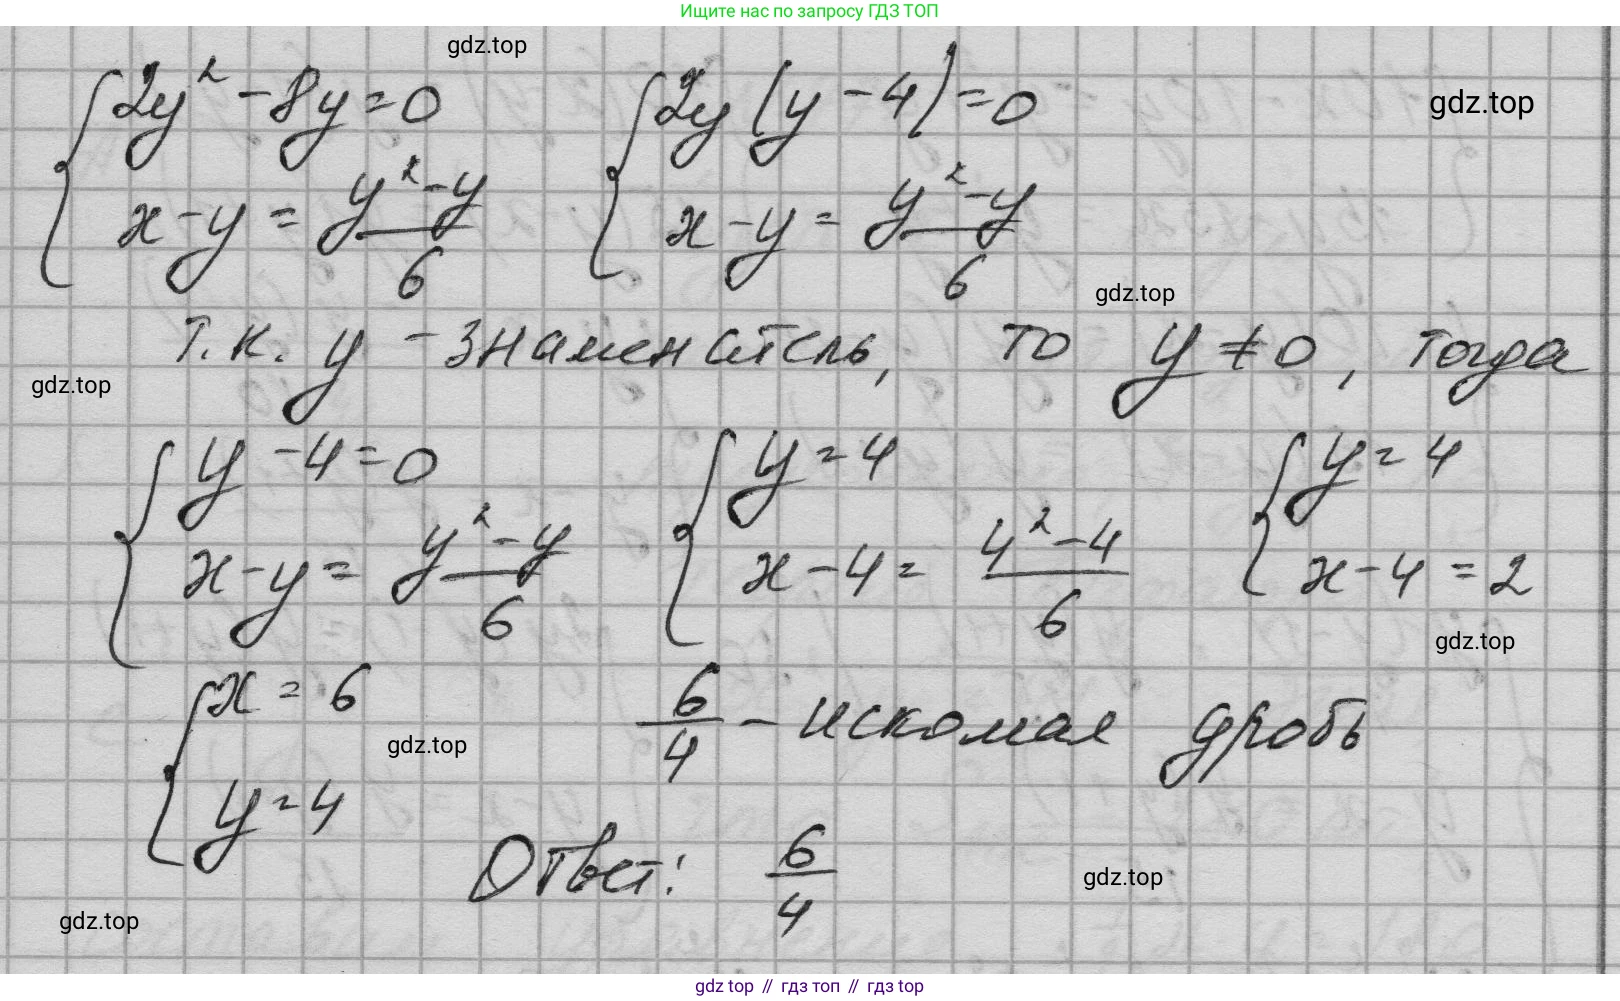 Ищите нас по запросу ГДЗ ТОП
gdz.top
gdz.top
{ 2y² - 8y = 0 { 2y (y - 4) = 0
x - y = (y² - y)/6 x - y = (y² - y)/6
gdz.top
т.к. y - знаменатель, то y ≠ 0, тогда
gdz.top
{ y - 4 = 0 { y = 4 { y = 4
x - y = (y² - y)/6 x - 4 = (4² - 4)/6 x - 4 = 2
gdz.top
{ x = 6 6/4 - искомая дробь
gdz.top
y = 4
Ответ: 6/4
gdz.top
gdz.top
gdz top // гдз топ // гдз top